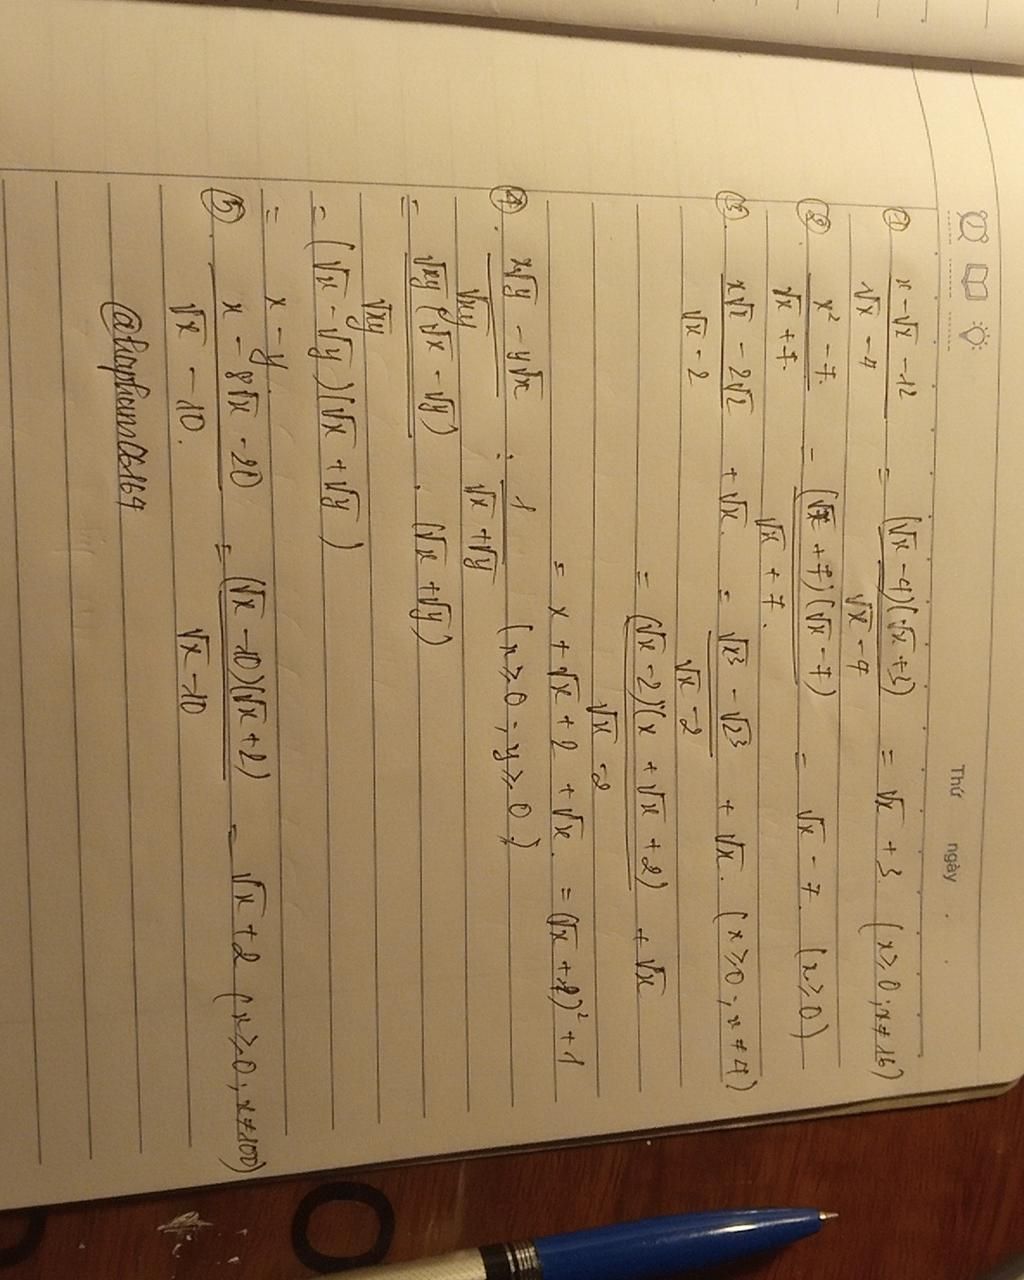 Thứ ngày
① x - √x - 12 / √x - 4 = (√x - 4)(√x + 3) / √x - 4 = √x + 3 (x ≥ 0; x ≠ 16)
② x² - 7 / √x + 7 = (√x + 7)(√x - 7) / √x + 7 = √x - 7 (x ≥ 0)
③ x√x - 2√2 / √x - 2 + √x = √x³ - √2³ / √x - 2 + √x (x ≥ 0; x ≠ 4)
= (√x - 2)(x + √x + 2) / √x - 2 + √x
= x + √x + 2 + √x = (√x + 1)² + 1
④ x√y - y√x / √xy : 1 / √x + √y (x ≥ 0; y ≥ 0)
= √xy (√x - √y) / √xy . (√x + √y)
= (√x - √y)(√x + √y)
= x - y
⑤ x - 8√x - 20 / √x - 10 = (√x - 10)(√x + 2) / √x - 10 = √x + 2 (x ≥ 0; x ≠ 100)